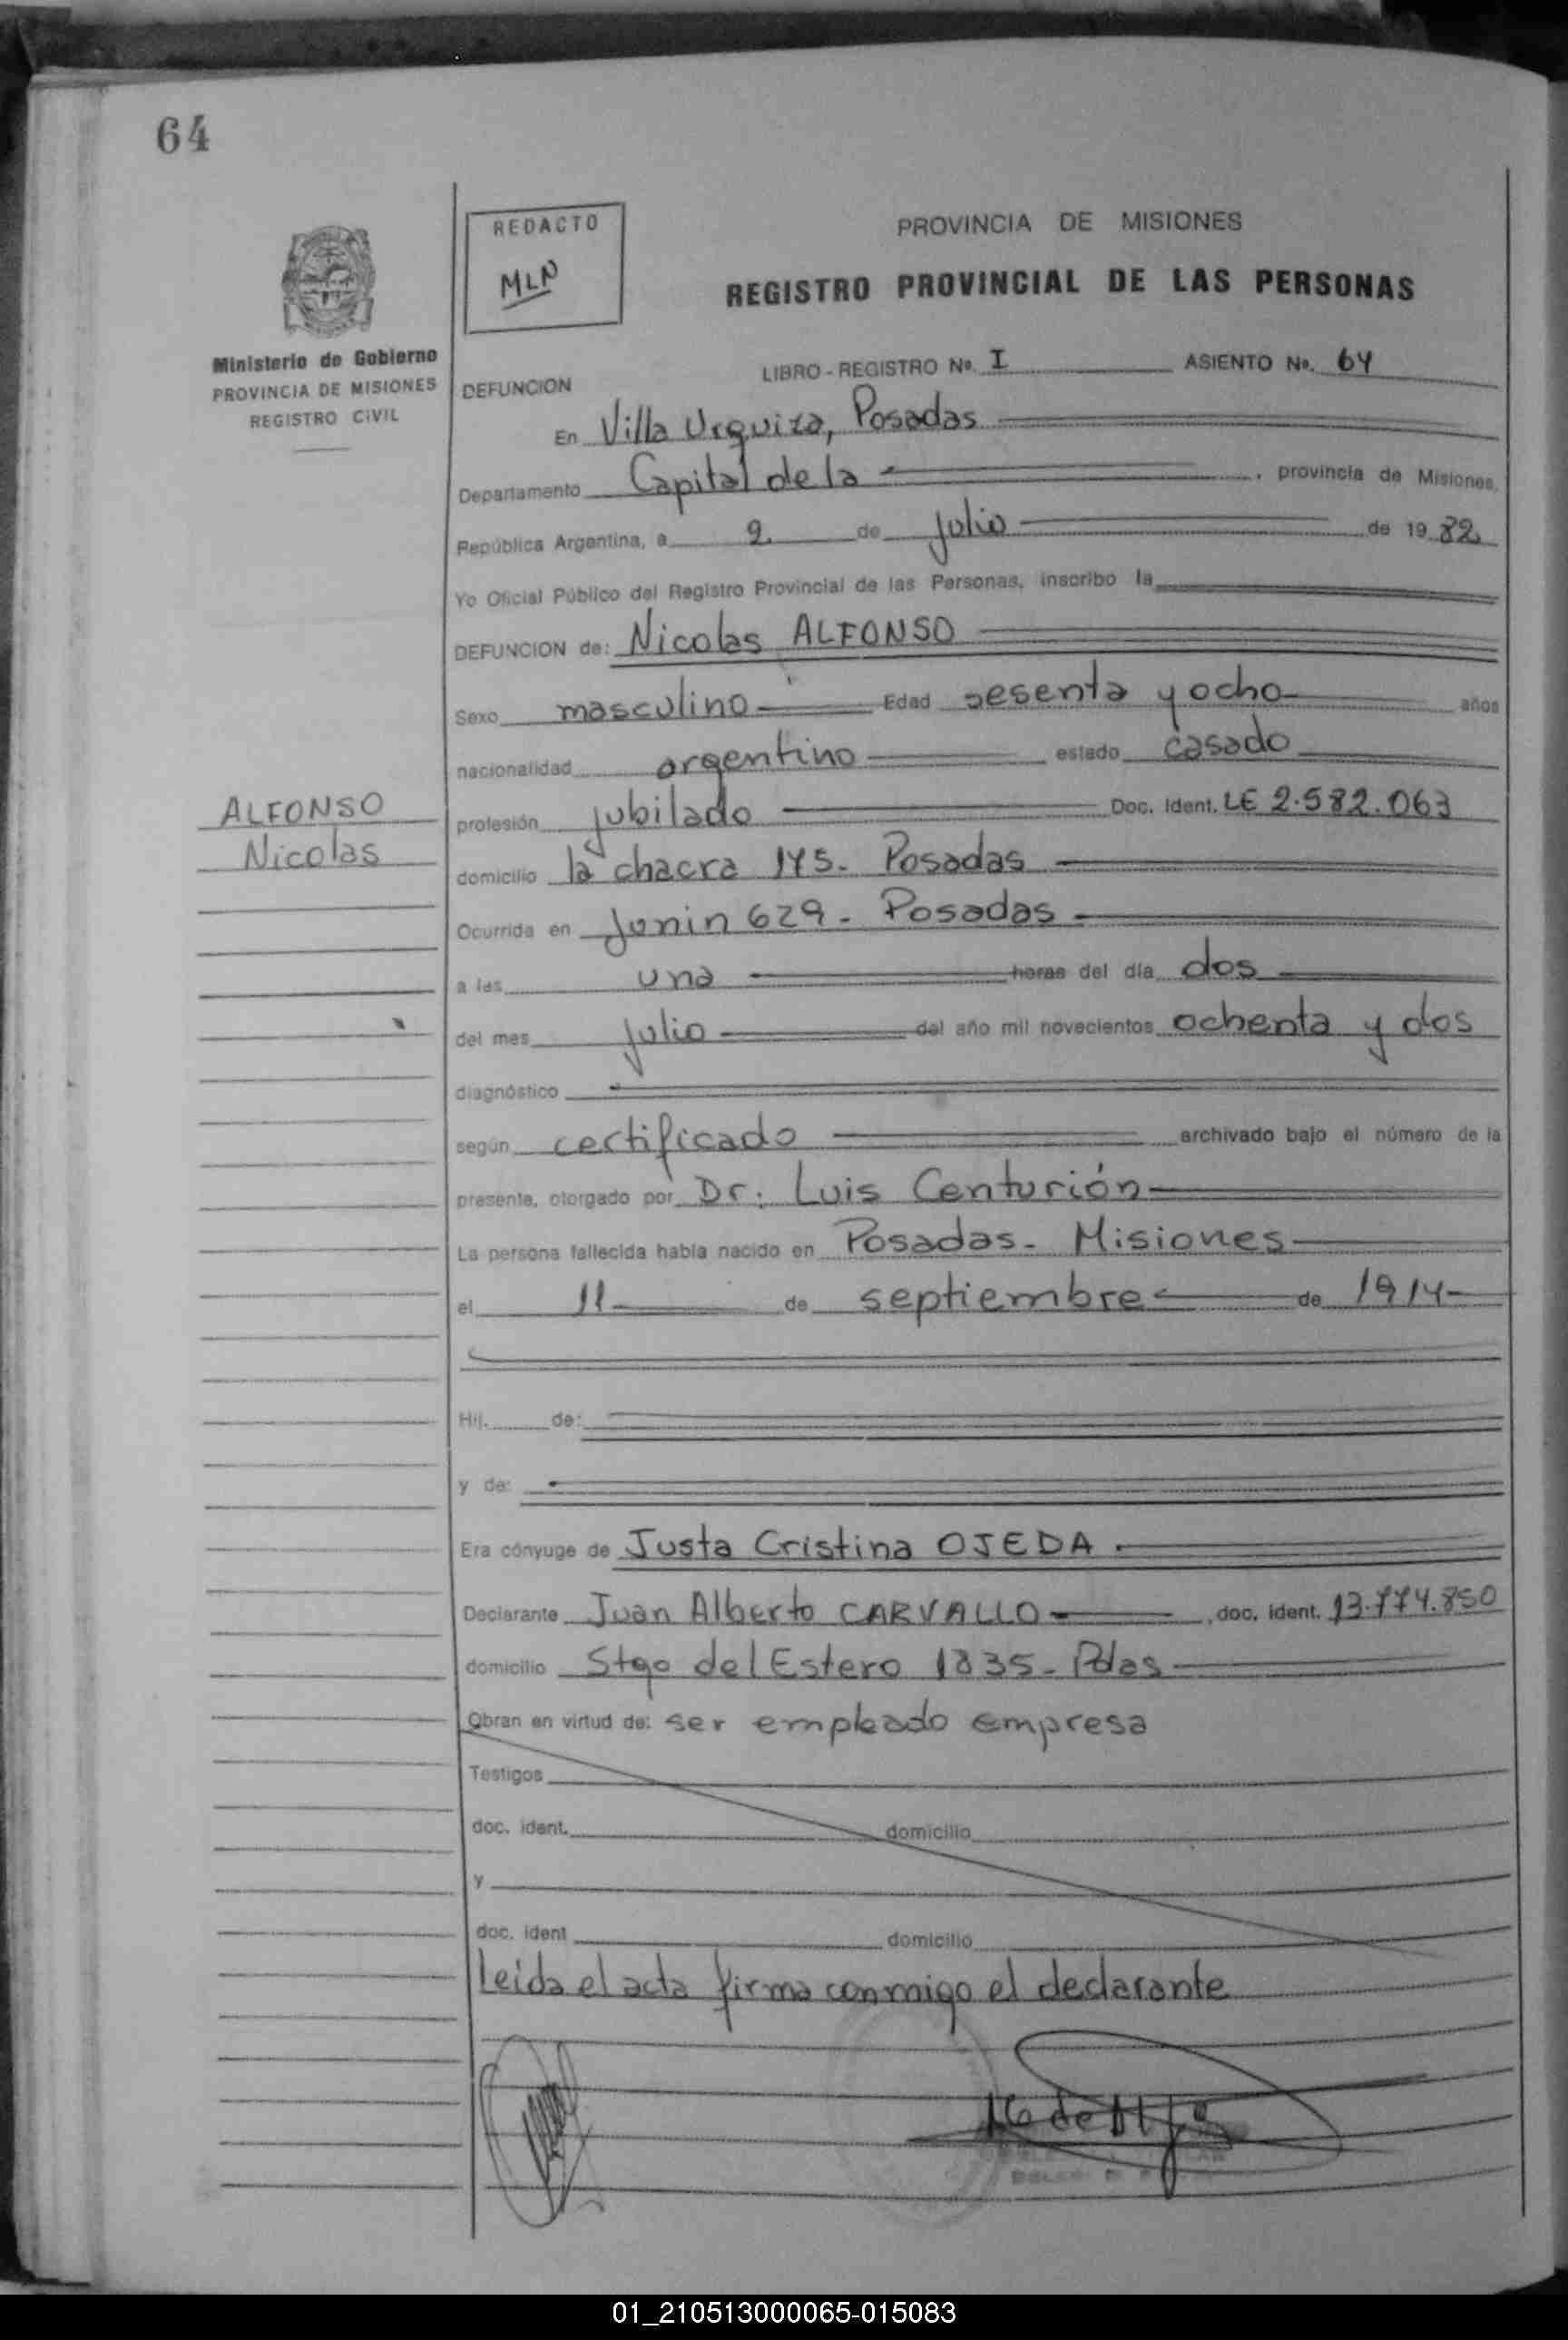 64
REDACTO
MLN
PROVINCIA DE MISIONES
REGISTRO PROVINCIAL DE LAS PERSONAS
Ministerio de Gobierno
PROVINCIA DE MISIONES
REGISTRO CIVIL
LIBRO - REGISTRO Nº. I ASIENTO Nº. 64
DEFUNCION
En Villa Urquiza, Posadas
Departamento Capital de la , provincia de Misiones,
República Argentina, a 2 de julio de 1982
Yo Oficial Público del Registro Provincial de las Personas, inscribo la
DEFUNCION de: Nicolas ALFONSO
Sexo masculino Edad sesenta y ocho años
nacionalidad argentino estado casado
ALFONSO
Nicolas
profesión jubilado Doc. Ident. LE 2.582.063
domicilio la chacra 145. Posadas
Ocurrida en Junin 629 - Posadas
a las una horas del día dos
del mes julio del año mil novecientos ochenta y dos
diagnóstico
según certificado archivado bajo el número de la
presente, otorgado por Dr. Luis Centurión
La persona fallecida había nacido en Posadas - Misiones
el 11 de septiembre de 1914
Hij. de:
y de:
Era cónyuge de Justa Cristina OJEDA.
Declarante Juan Alberto CARVALLO , doc. ident. 13.774.850
domicilio Stgo del Estero 1835 - Pdas
Obran en virtud de: ser empleado empresa
Testigos
doc. ident. domicilio
y
doc. ident domicilio
Leida el acta firma conmigo el declarante
01_210513000065-015083